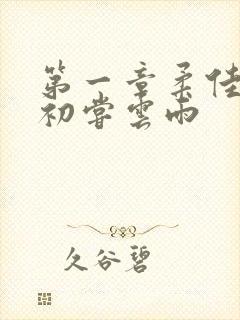 第一章柔佳
初尝雲雨
久谷碧